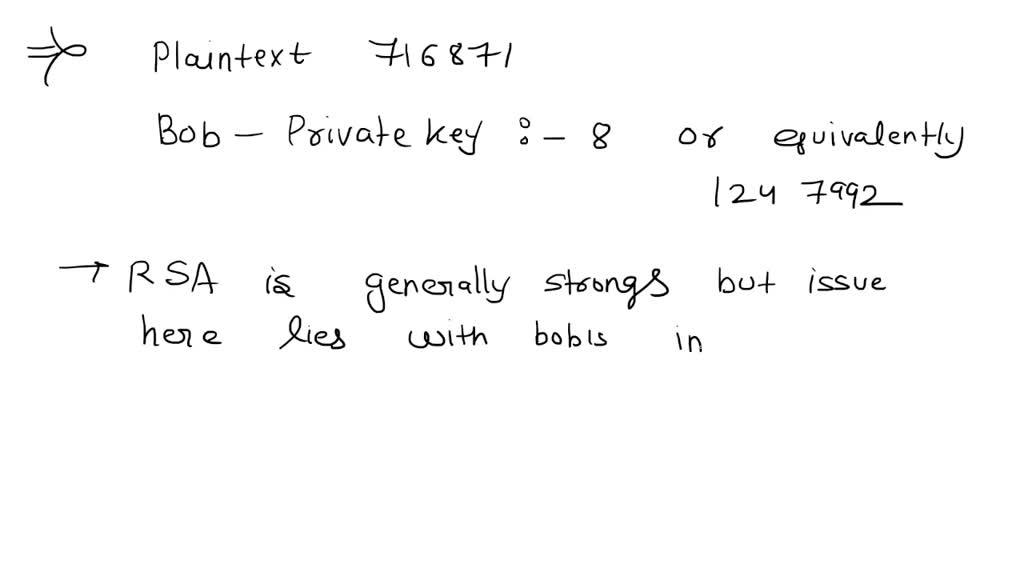 ⇒ Plaintext 716871
Bob - Private key :- 8 or equivalently
124 7992
→ RSA is generally strongs but issue
here lies with bobis in